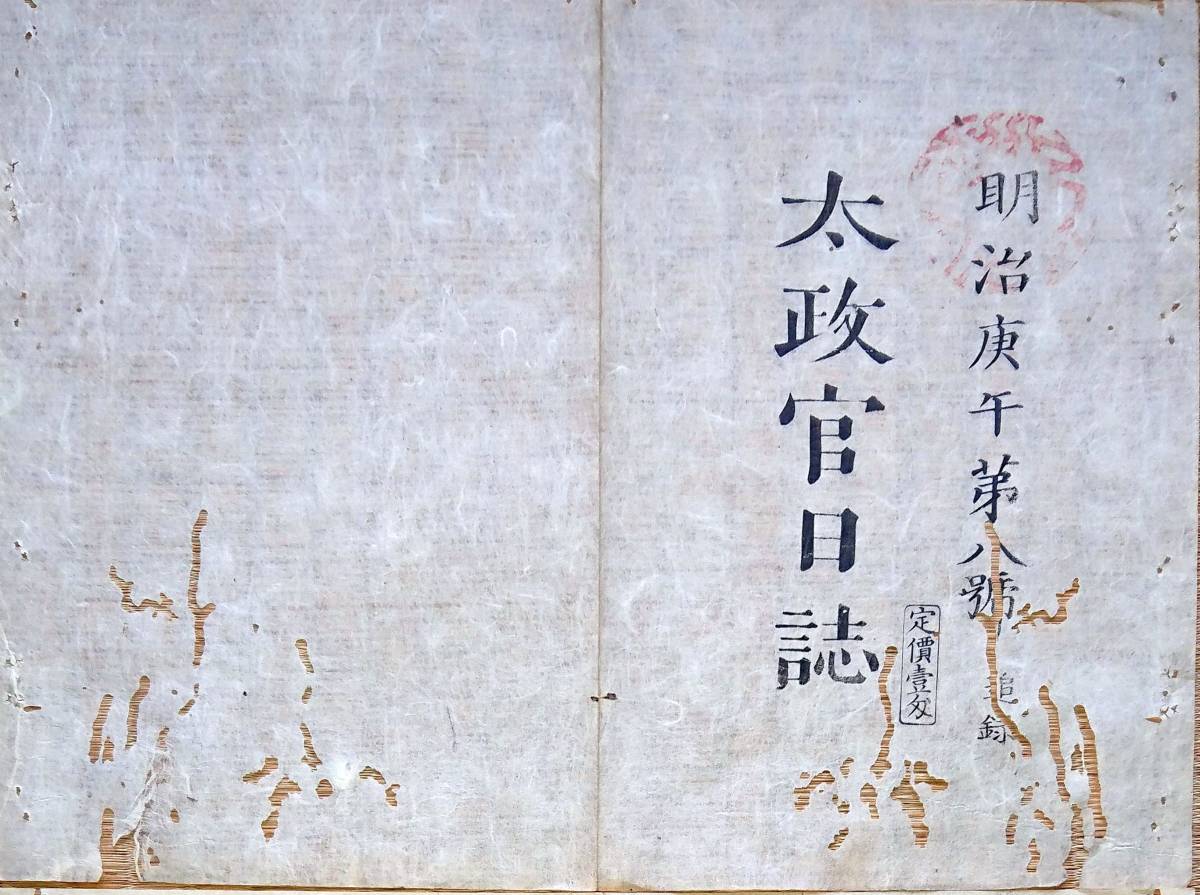 明治庚午第八號 追錄
太政官日誌
定價壹匁